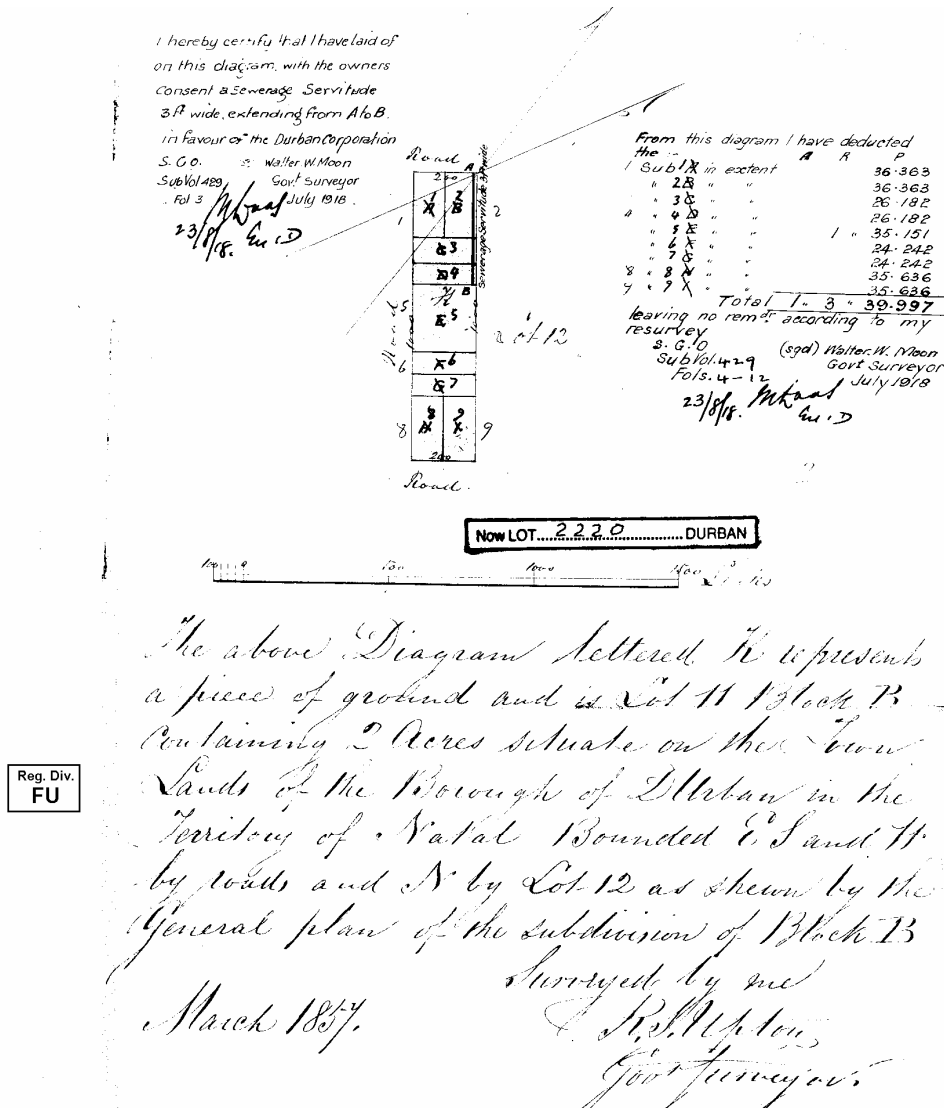 I hereby certify that I have laid of
on this diagram, with the owners
consent a Sewerage Servitude
3 ft wide, extending from A to B.
in favour of the Durban Corporation
S. G. O. Walter W. Moon
Sub Vol 489 Govt Surveyor
Fol 3 July 1918.
23/8/18.
Road
A
200
1 2
1 2
Sewerage Servitude 3ft wide
3
4
B
5 5
Road
Lot 12
6 6
7
8 8 9 9
200
Road.
From this diagram I have deducted
the A R P
1 Sub 1 in extent 36.363
" 2 " " 36.363
" 3 " " 26.182
4 " 4 " " 26.182
" 5 " " 1 " 35.151
" 6 " " 24.242
" 7 " " 24.242
8 " 8 " " 35.636
9 " 9 " " 35.636
Total 1 " 3 " 39.997
leaving no remdr. according to my
resurvey
S. G. O (sgd) Walter. W. Moon
Sub Vol. 429 Govt Surveyor
Fols. 4-12 July 1918
23/8/18.
Now LOT....2220....DURBAN
100 0 500 1000 1500 Links
The above Diagram lettered K represents
a piece of ground and is Lot 11 Block B
Containing 2 Acres situate on the Town
Lands of the Borough of DUrban in the
Territory of Natal Bounded E S and W
by roads and N by Lot 12 as shewn by the
General plan of the subdivision of Block B
Surveyed by me
March 1857. R. S. Upton
Govt Surveyor.
Reg. Div.
FU